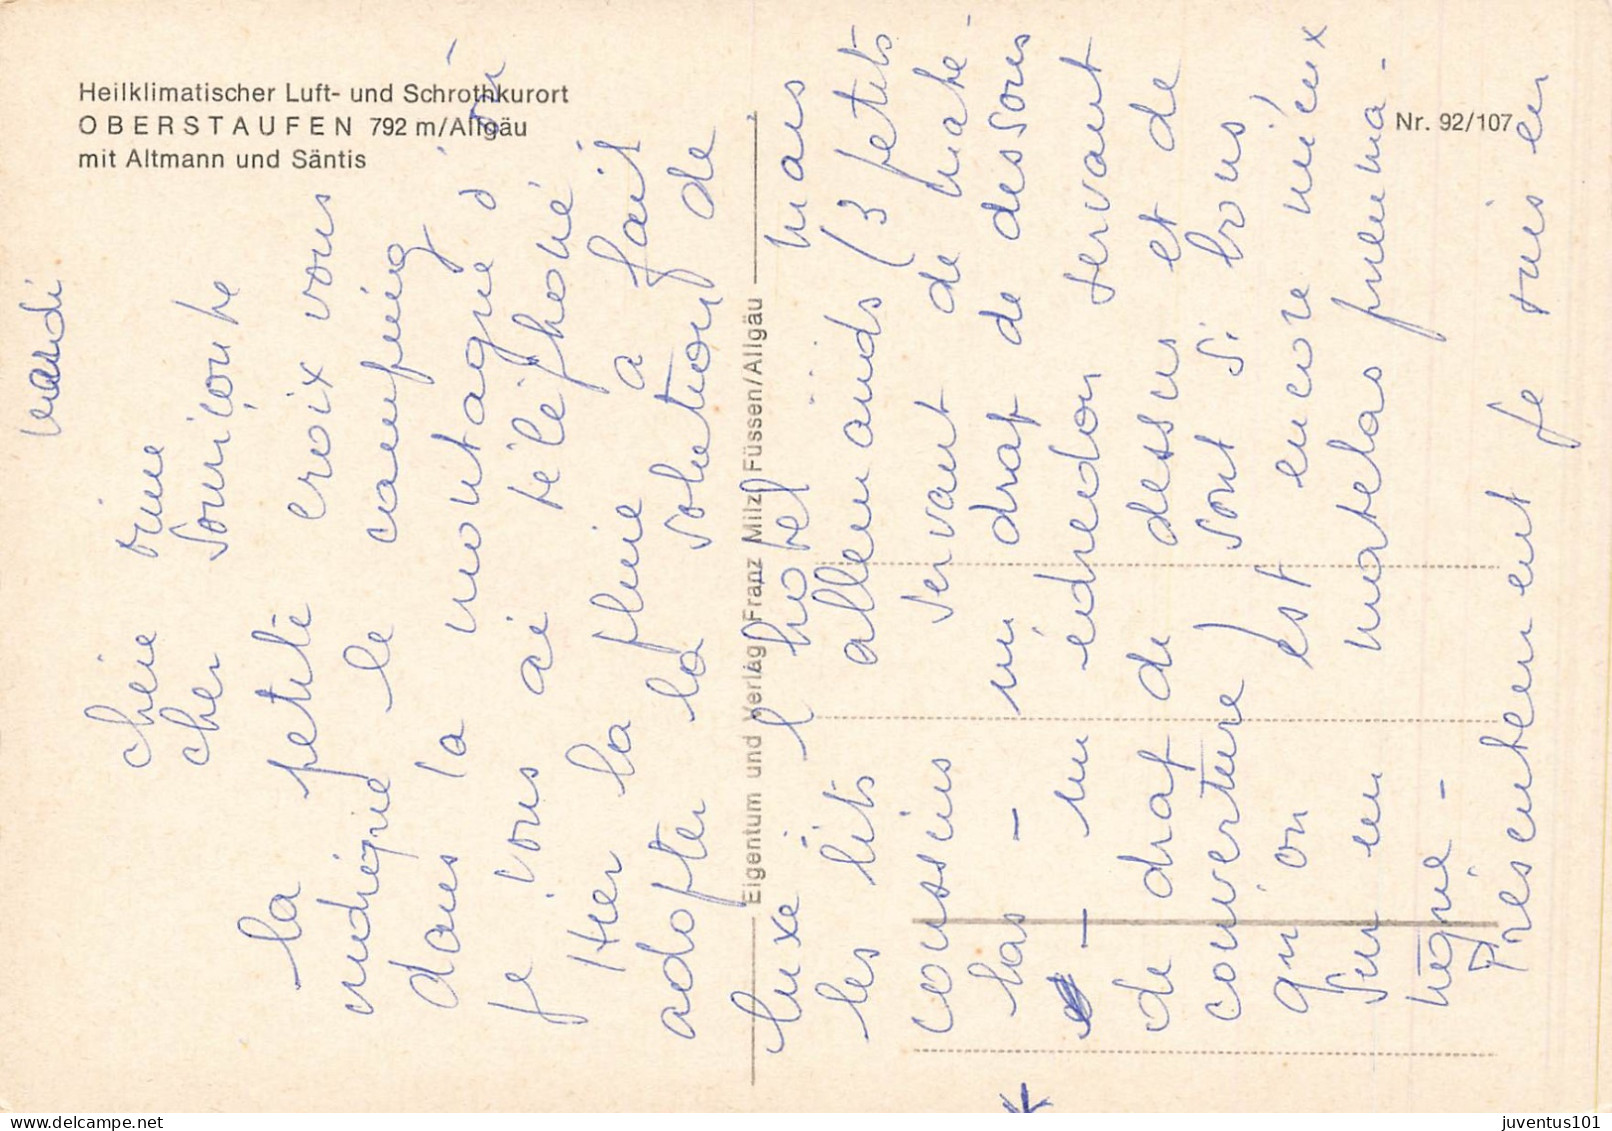 Heilklimatischer Luft- und Schrothkurort
OBERSTAUFEN 792 m/Allgäu
mit Altmann und Säntis
Nr. 92/107
Eigentum und Verlag Franz Milz Füssen/Allgäu
mardi
chère
cher
la petite croix vous
indique le camping
dans la montagne d'où
je vous ai téléphoné
Hier la pluie a fait
adopter la solution de
luxe l'hôtel mais
les lits allemands (3 petits
coussins servant de mate-
las - un drap de dessous
- un édredon servant
de drap de dessus et de
couverture) sont si bons!
qu'on est encore mieux
sur un matelas pneuma-
tique -
Présentement je suis en
juventus101